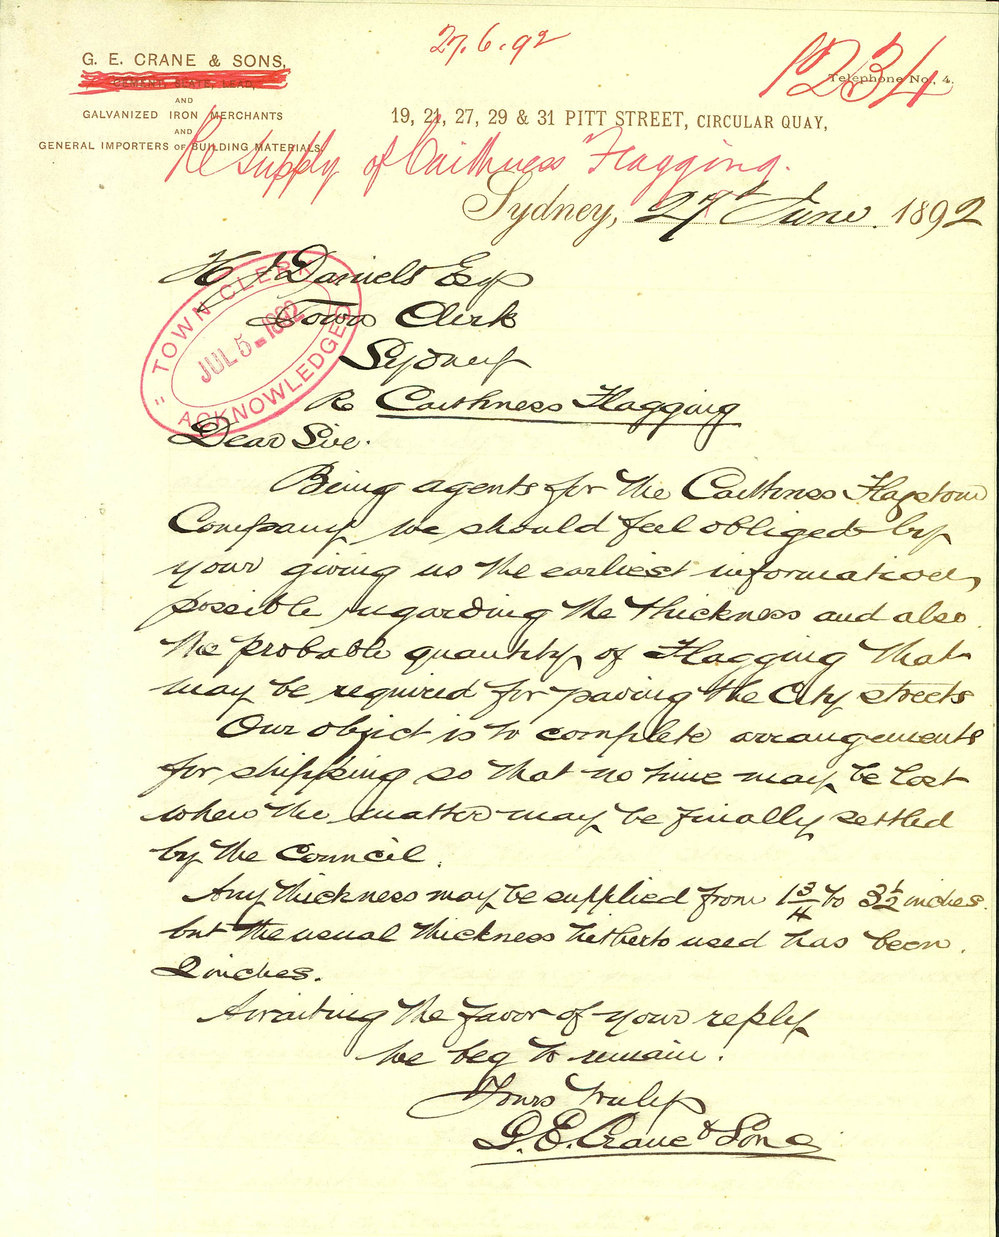 27.6.92
1234
G. E. CRANE & SONS,
CEMENT, SLATE, LEAD,
AND
GALVANIZED IRON MERCHANTS
AND
GENERAL IMPORTERS OF BUILDING MATERIALS.
Telephone No. 4.
19, 21, 27, 29 & 31 PITT STREET, CIRCULAR QUAY,
Re supply of Caithness Flagging.
Sydney, 27th June 1892
H J Daniels Esq
Town Clerk
Sydney
TOWN CLERK
JUL 5 - 1892
ACKNOWLEDGED
Re Caithness Flagging
Dear Sir.
Being agents for the Caithness Flagstone
Company we should feel obliged by
your giving us the earliest information
possible regarding the thickness and also
the probable quantity of Flagging that
may be required for paving the City streets
Our object is to complete arrangements
for shipping so that no time may be lost
when the matter may be finally settled
by the Council.
Any thickness may be supplied from 1 3/4 to 3 1/2 inches.
but the usual thickness hitherto used has been.
2 inches.
Awaiting the favor of your reply
We beg to remain.
Yours truly
G. E. Crane & Sons